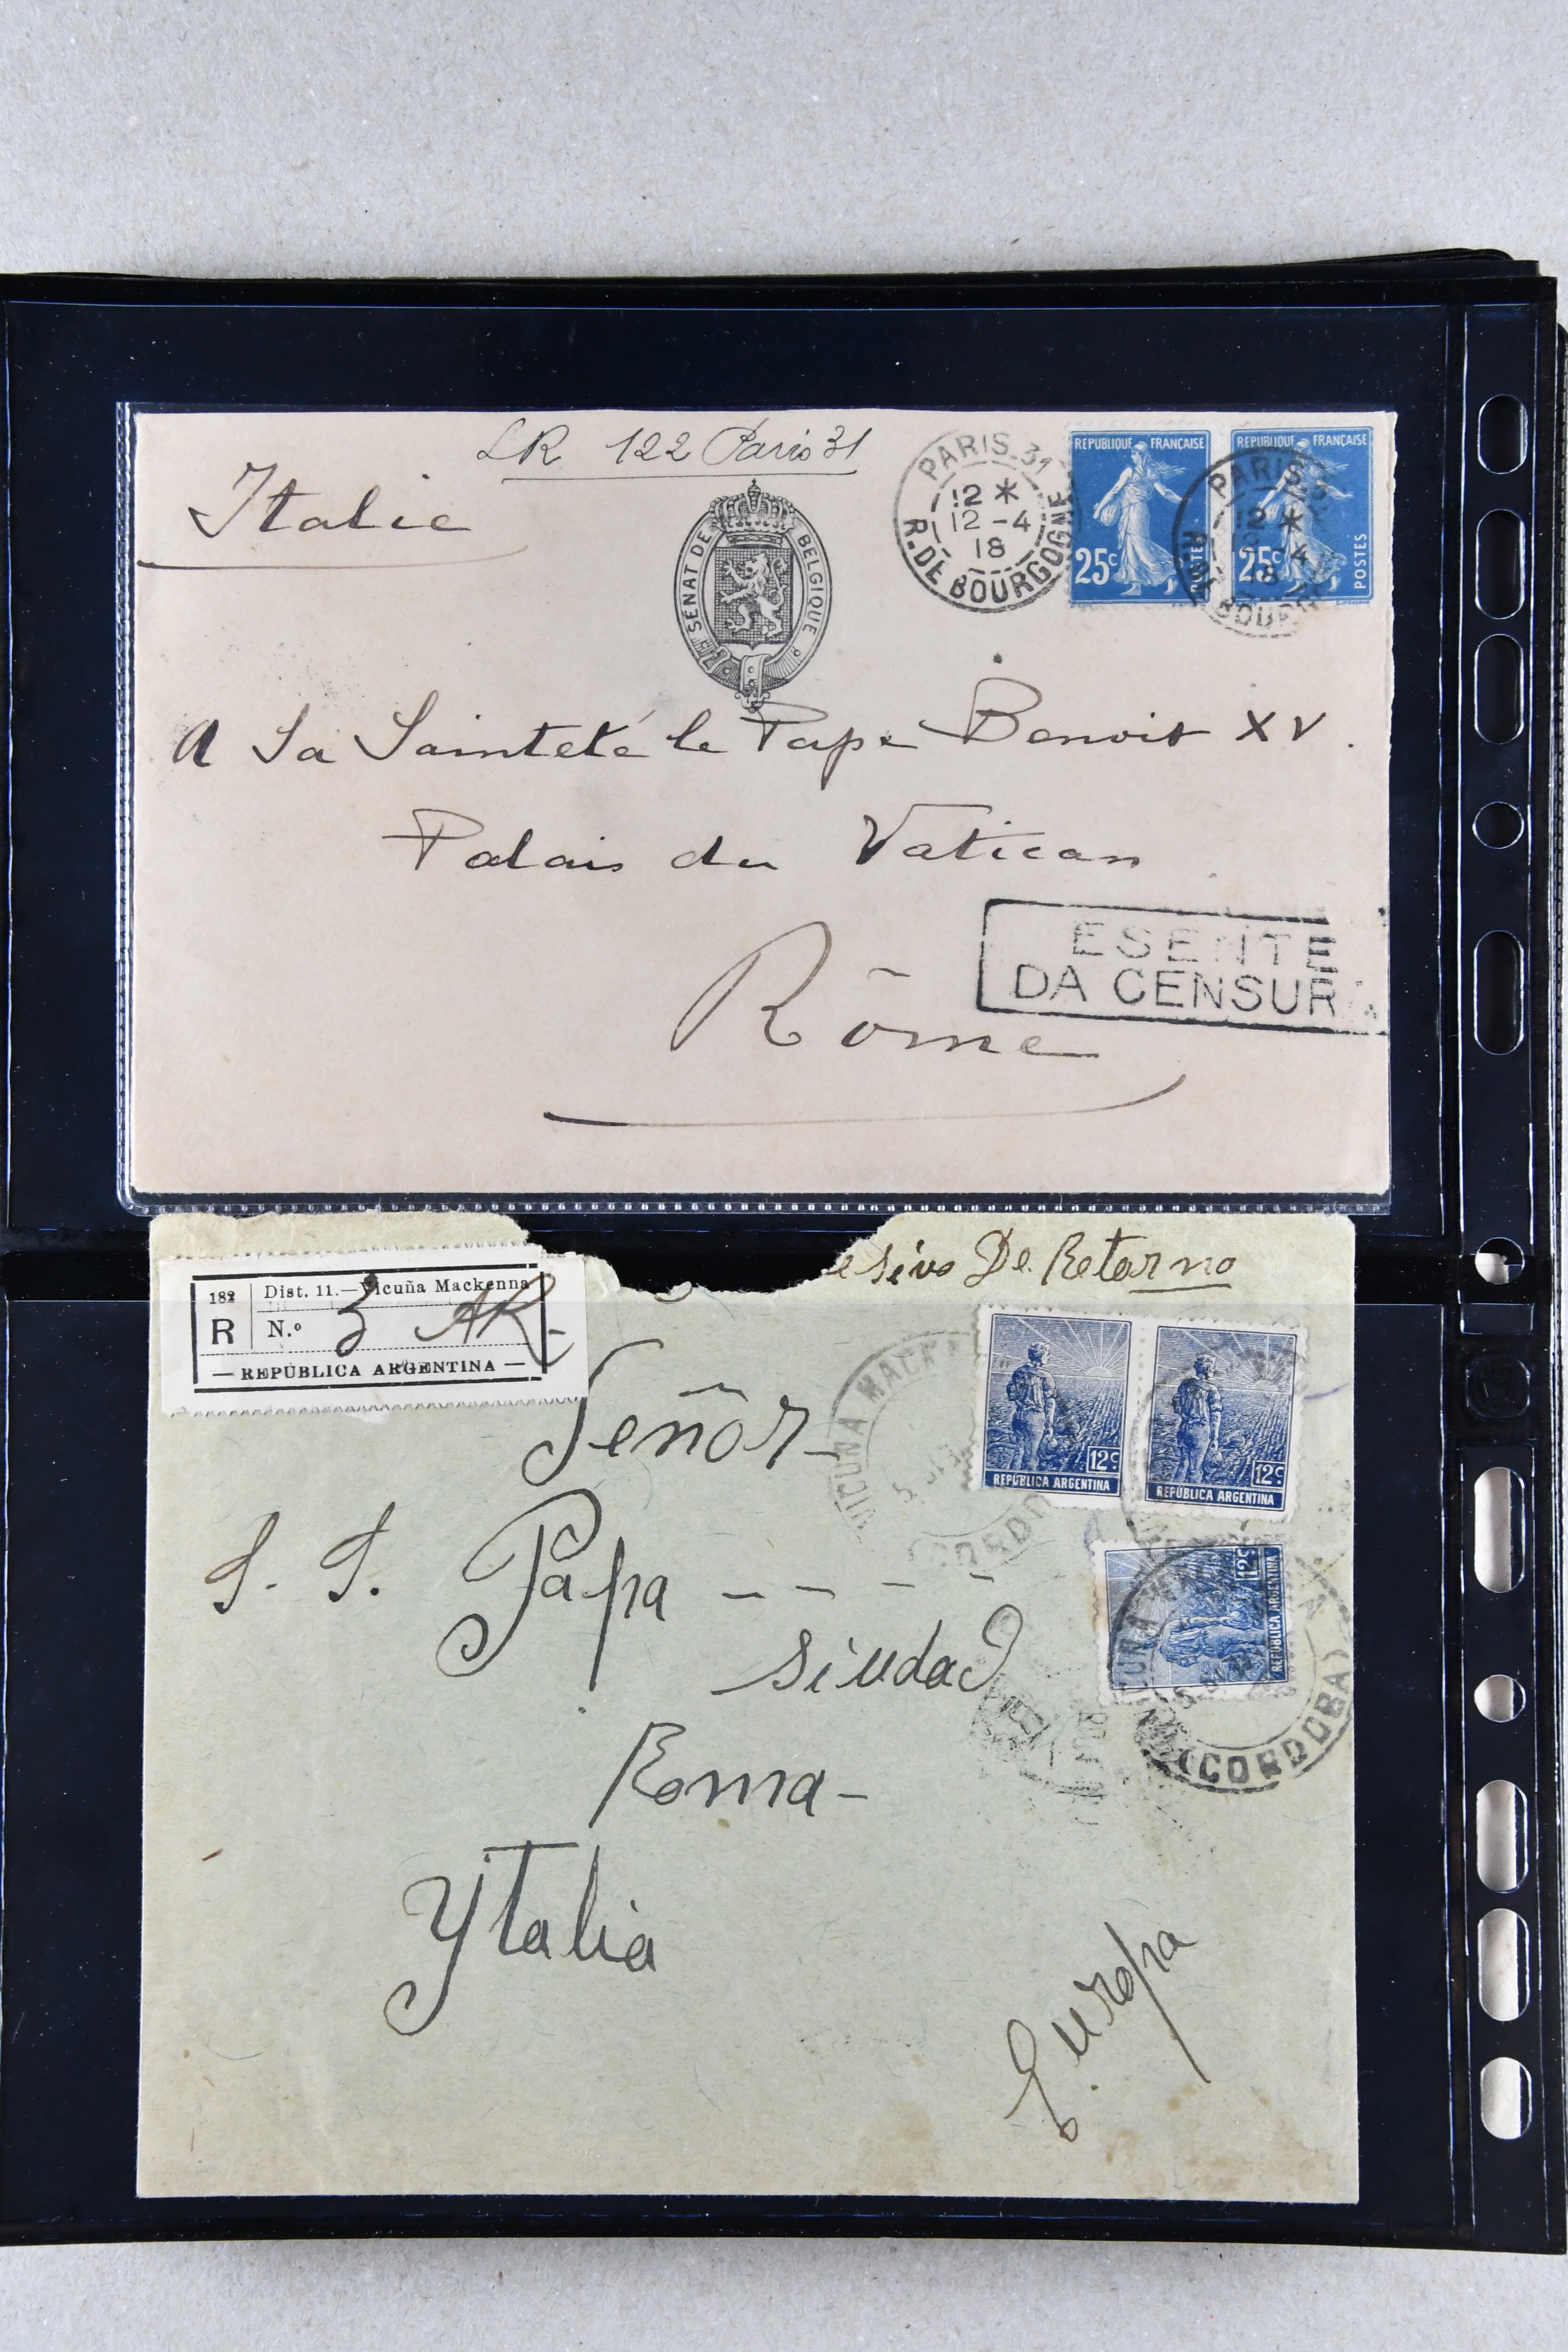 LR 122 Paris 31
Italie
SÉNAT DE BELGIQUE
PARIS-31
12 *
12 - 4
18
R. DE BOURGOGNE
REPUBLIQUE FRANÇAISE
25c
POSTES
REPUBLIQUE FRANÇAISE
25c
POSTES
PARIS
12 *
4
18
A Sa Sainteté le Pape Benoit XV.
Palais du Vatican
ESENTE
DA CENSURA
Rôme
De Retorno
182 Dist. 11.—Vicuña Mackenna
R N.º 3 AR
— REPÚBLICA ARGENTINA —
VICUÑA MACK
CORDO
12c
REPÚBLICA ARGENTINA
12c
REPÚBLICA ARGENTINA
12c
REPÚBLICA ARGENTINA
(CORDOBA)
Señor
S. S. Pàpa - - - -
siudad
Roma-
Ytalia
Europa